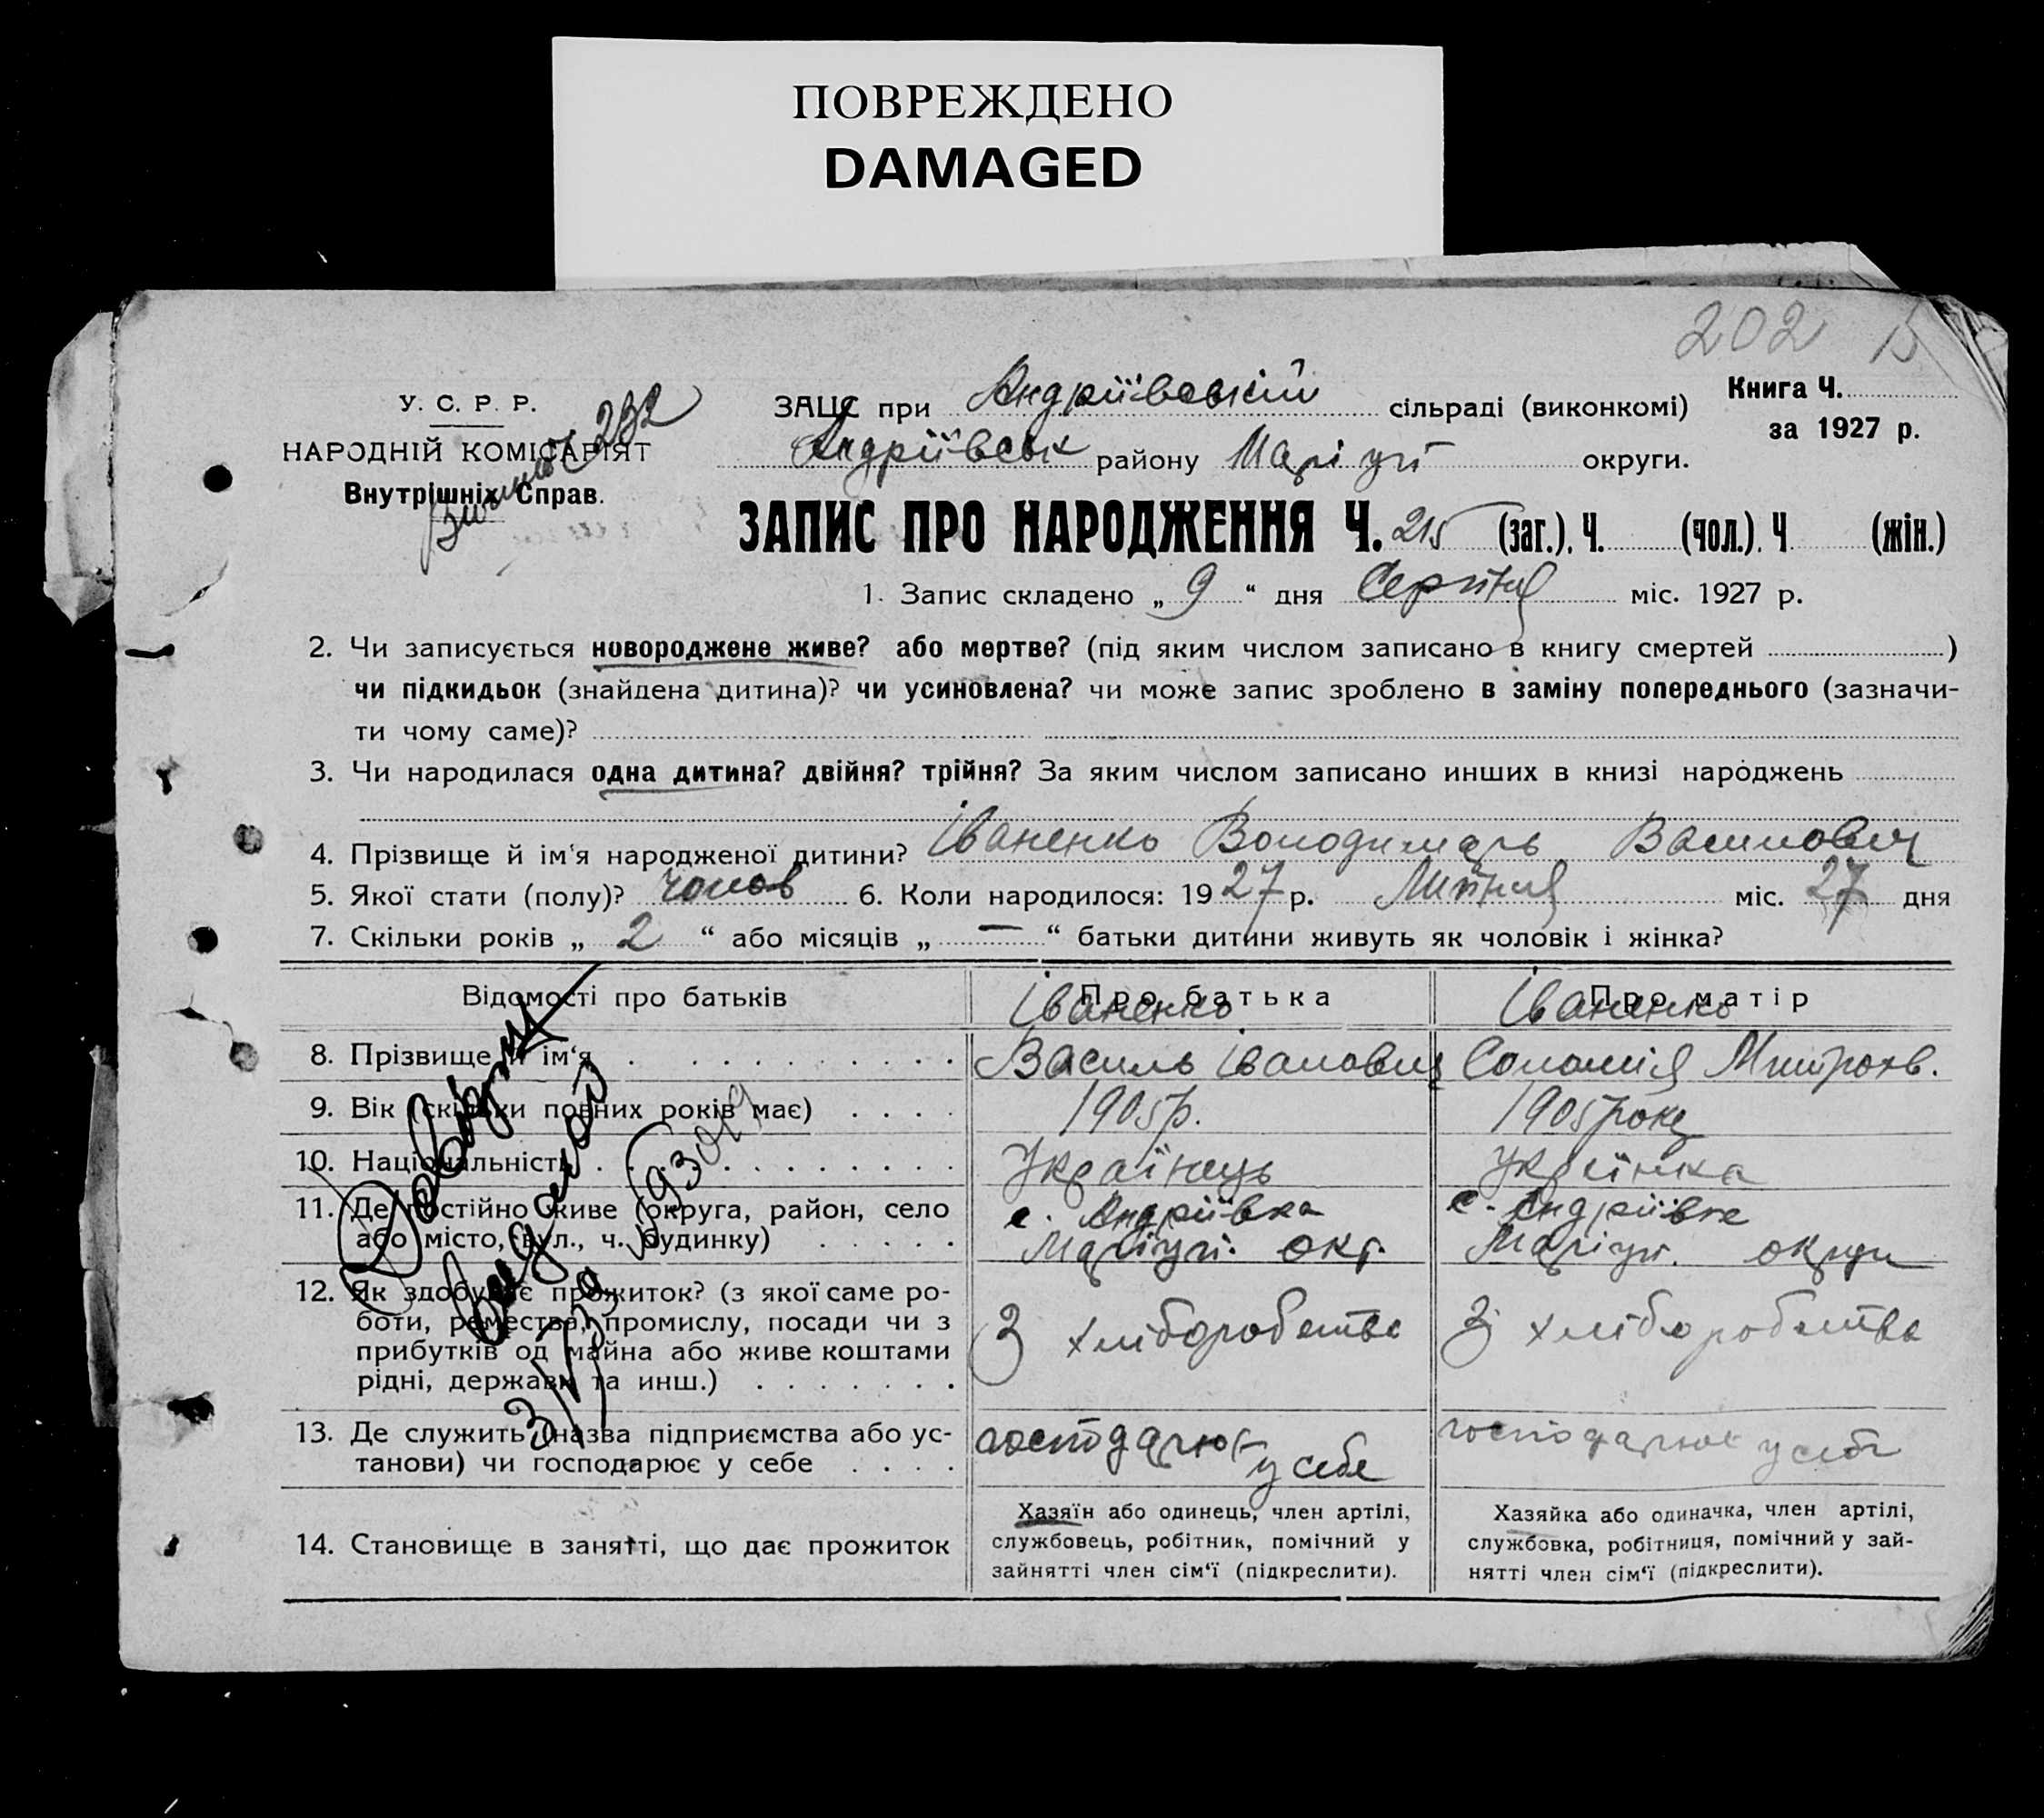 ПОВРЕЖДЕНО
DAMAGED
202
У. С. Р. Р.
НАРОДНІЙ КОМІСАРІЯТ
Внутрішніх Справ.
232
ЗАЦС при Андріївській сільраді (виконкомі)
Книга Ч.
за 1927 р.
Андріївськ району Маріуп округи.
ЗАПИС ПРО НАРОДЖЕННЯ Ч. 215 (заг.). Ч. (чол.). Ч (жін.)
1. Запис складено „ 9 “ дня Серпня міс. 1927 р.
2. Чи записується новороджене живе? або мертве? (під яким числом записано в книгу смертей )
чи підкидьок (знайдена дитина)? чи усиновлена? чи може запис зроблено в заміну попереднього (зазначи-
ти чому саме)?
3. Чи народилася одна дитина? двійня? трійня? За яким числом записано инших в книзі народжень
4. Прізвище й ім‘я народженої дитини? Іваненко Володимарь Васильович
5. Якої стати (полу)? чолов 6. Коли народилося: 1927 р. Липня міс. 27 дня
7. Скільки років „ 2 “ або місяців „ — “ батьки дитини живуть як чоловік і жінка?
Відомості про батьків
Про батька
Про матір
Іваненко
Іваненко
8. Прізвище й ім‘я
Василь Іванович
Соломія Митроф.
9. Вік (скільки повних років має)
1905 р.
1905 року
10. Національність
Українець
Українка
11. Де постійно живе (округа, район, село
або місто, вул., ч. будинку)
с. Андріївка
Маріуп. окр.
с. Андріївка
Маріуп. округи
12. Як здобуває прожиток? (з якої саме ро-
боти, ремества, промислу, посади чи з
прибутків од майна або живе коштами
рідні, держави та инш.)
З хліборобства
З хліборобства
13. Де служить (назва підприємства або ус-
танови) чи господарює у себе
господарює
у себе
господарює у себе
14. Становище в занятті, що дає прожиток
Хазяїн або одинець, член артілі,
службовець, робітник, помічний у
зайнятті член сім‘ї (підкреслити).
Хазяйка або одиначка, член артілі,
службовка, робітниця, помічний у зай-
нятті член сім‘ї (підкреслити).
видано